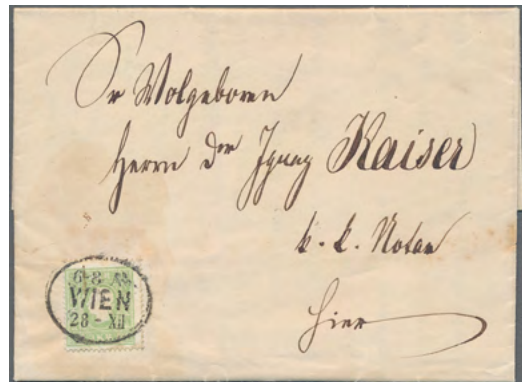 Sr Wolgeboren
Herrn Dr Ignaz Kaiser
k. k. Notar
Hier
WIEN
28 - XII